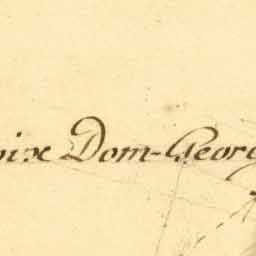 oix Dom-Georg